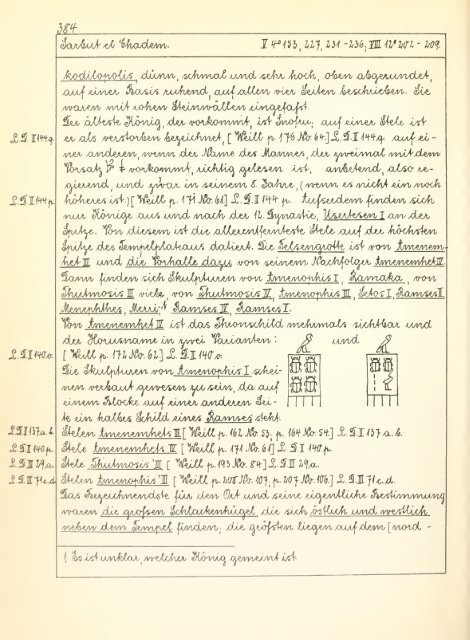 384
Sarbut el Chadem. V 4° 153, 227, 231-236, VIII 12° 202 - 209.
kodilopolis, dünn, schmal und sehr hoch, oben abgerundet,
auf einer Basis ruhend, auf allen vier Seiten beschrieben. Sie
waren mit rohen Steinwällen eingefasst.
Der älteste König, der vorkommt, ist Snofru; auf einer Stele ist
L.D. II 144.q er als verstorben bezeichnet, [Weill p. 176 No. 64.] L.D. II 144.q auf ei-
ner anderen, wenn der Name des Mannes, der zweimal mit dem
Vorsatz vorkommt, richtig gelesen ist, anbetend, also re-
gierend, und zwar in seinem 8. Jahre, (wenn es nicht ein noch
L.D. II 144 p. höheres ist.) [Weill p. 171 No. 68] L.D. II 144 p. Aufserdem finden sich
nur Könige aus und nach der 12. Dynastie, Usertesen I an der
Spitze. Von diesem ist die allerentfernteste Stele auf der höchsten
Spitze des Tempelplateaus datiert. Die Felsengrotte ist von Amenem-
het III und die Vorhalle dazu von seinem Nachfolger Amenemhet IV.
Dann finden sich Skulpturen von Amenophis I, Ramaka, von
Thutmosis III viele, von Thutmosis IV, Amenophis III, Setos I, Ramses II,
Menephthes, Merri.¹ Ramses IV, Ramses I.
Von Amenemhet IV ist das Thronschild mehrmals sichtbar und
der Horusname in zwei Varianten: und
L.D. II 140.o. [Weill p. 172 No. 62.] L.D. II 140 o.
Die Skulpturen von Amenophis I schei-
nen verbaut gewesen zu sein, da auf
einem Blocke auf einer anderen Sei-
te ein halbes Schild eines Ramses steht.
L.D. II 137 a. b. Stelen Amenemhets III [Weill p. 162 No. 53, p. 164 No. 54.] L.D. II 137 a. b.
L.D. II 140 p. Stele Amenemhets IV [Weill p. 171 No. 61] L.D. II 140 p.
L.D. III 29 a. Stele Thutmosis III [Weill p. 193 No. 84] L.D. III 29, a.
L.D. III 71 c. d. Stelen Amenophis III [Weill p. 208 No. 107, p. 207 No. 106.] L.D. III 71 c. d.
Das Bezeichnendste für den Ort und seine eigentliche Bestimmung
waren die grofsen Schlackenhügel, die sich östlich und westlich
neben dem Tempel finden; die gröfsten liegen auf dem (nord-
1. Es ist unklar, welcher König gemeint ist.